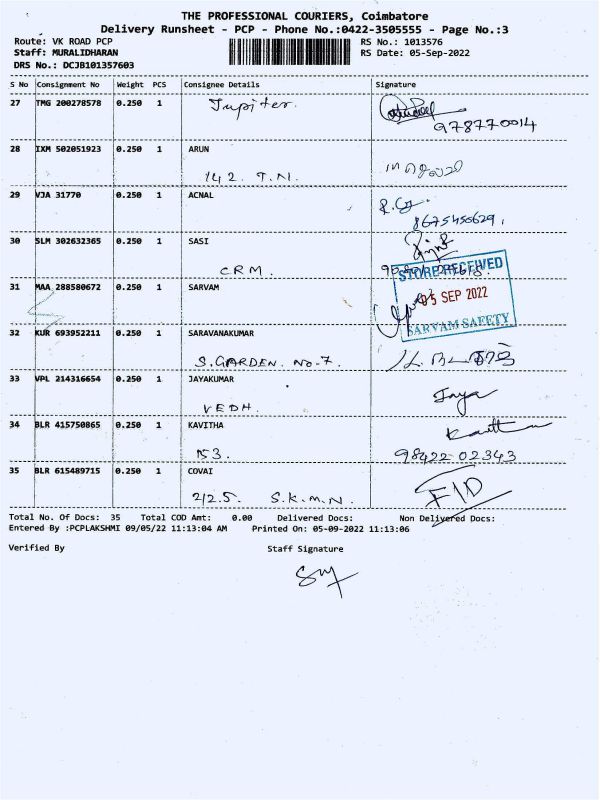 THE PROFESSIONAL COURIERS, Coimbatore
Delivery Runsheet - PCP - Phone No.:0422-3505555 - Page No.:3
Route: VK ROAD PCP RS No.: 1013576
Staff: MURALIDHARAN RS Date: 05-Sep-2022
DRS No.: DCJB101357603
S No Consignment No Weight PCS Consignee Details Signature
27 TMG 200278578 0.250 1 Jupiter.
9787770014
28 IXM 502051923 0.250 1 ARUN
142. T.N.
29 VJA 31770 0.250 1 ACNAL
8675456629.
30 SLM 302632365 0.250 1 SASI
CRM.
STORE RECEIVED
31 MAA 288580672 0.250 1 SARVAM
05 SEP 2022
SARVAM SAFETY
32 KUR 693952211 0.250 1 SARAVANAKUMAR
S.GARDEN. No-7.
33 VPL 214316654 0.250 1 JAYAKUMAR Jaya
VEDH.
34 BLR 415750865 0.250 1 KAVITHA
153. 98422 02343
35 BLR 615489715 0.250 1 COVAI F/D
2/25. S.K.M.N.
Total No. Of Docs: 35 Total COD Amt: 0.00 Delivered Docs: Non Delivered Docs:
Entered By :PCPLAKSHMI 09/05/22 11:13:04 AM Printed On: 05-09-2022 11:13:06
Verified By Staff Signature